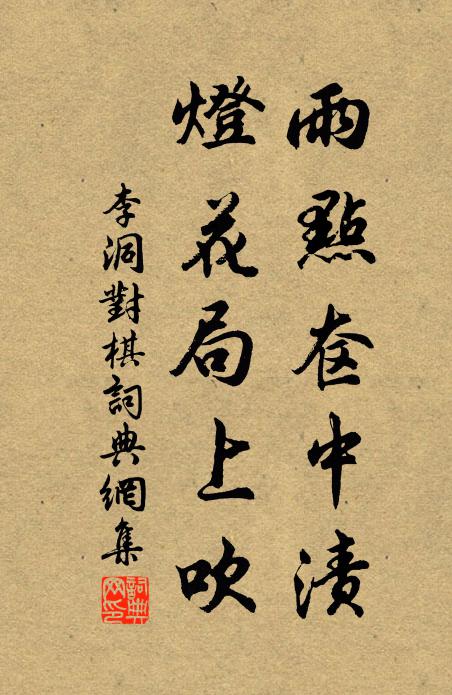 雨點奁中漬
燈花局上吹
李洞對棋詞典網集
詞典網印